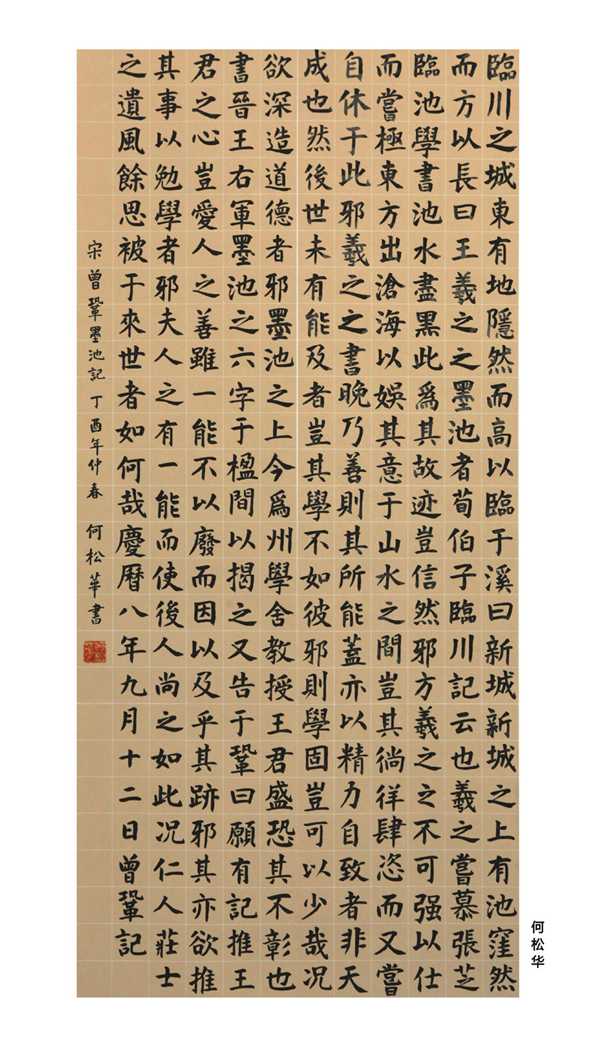 臨川之城東有地隱然而高以臨于溪曰新城新城之上有池窪然
而方以長曰王羲之之墨池者荀伯子臨川記云也羲之嘗慕張芝
臨池學書池水盡黑此爲其故迹豈信然邪方羲之之不可强以仕
而嘗極東方出滄海以娛其意于山水之間豈其徜徉肆恣而又嘗
自休于此邪羲之之書晚乃善則其所能蓋亦以精力自致者非天
成也然後世未有能及者豈其學不如彼邪則學固豈可以少哉况
欲深造道德者邪墨池之上今爲州學舍教授王君盛恐其不彰也
書晉王右軍墨池之六字于楹間以揭之又告于鞏曰願有記推王
君之心豈愛人之善雖一能不以廢而因以及乎其跡邪其亦欲推
其事以勉學者邪夫人之有一能而使後人尚之如此况仁人莊士
之遺風餘思被于來世者如何哉慶曆八年九月十二日曾鞏記
宋曾鞏墨池記 丁酉年仲春 何松華書
何松华